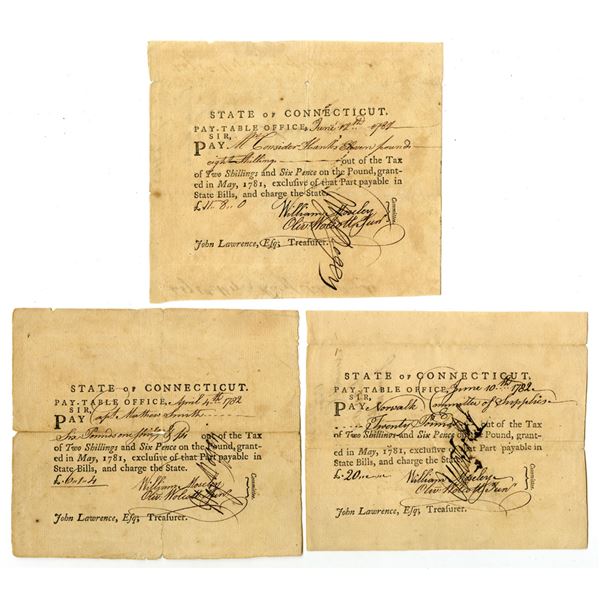 STATE OF CONNECTICUT.
PAY-TABLE OFFICE, June 12th 1782
SIR,
PAY Mr Consider Eleven pounds
eight Shillings out of the Tax
of Two Shillings and Six Pence on the Pound, grant-
ed in May, 1781, exclusive of that Part payable in
State Bills, and charge the State.
£11..8..0
William Moseley
Oliv Wolcott Junr
Committee.
John Lawrence, Esq; Treasurer.
STATE OF CONNECTICUT.
PAY-TABLE OFFICE, April 4th 1782
SIR,
PAY Capt Mathew Smith
Six Pounds one out of the Tax
of Two Shillings and Six Pence on the Pound, grant-
ed in May, 1781, exclusive of that Part payable in
State Bills, and charge the State.
£6-1-4
William Moseley
Oliv Wolcott Junr
Committee.
John Lawrence, Esq; Treasurer.
STATE OF CONNECTICUT.
PAY-TABLE OFFICE, June 10th 1782
SIR,
PAY Norwalk Committee of Supplies
Twenty Pounds out of the Tax
of Two Shillings and Six Pence on the Pound, grant-
ed in May, 1781, exclusive of that Part payable in
State Bills, and charge the State.
£20
William Moseley
Oliv Wolcott Junr
Committee.
John Lawrence, Esq; Treasurer.